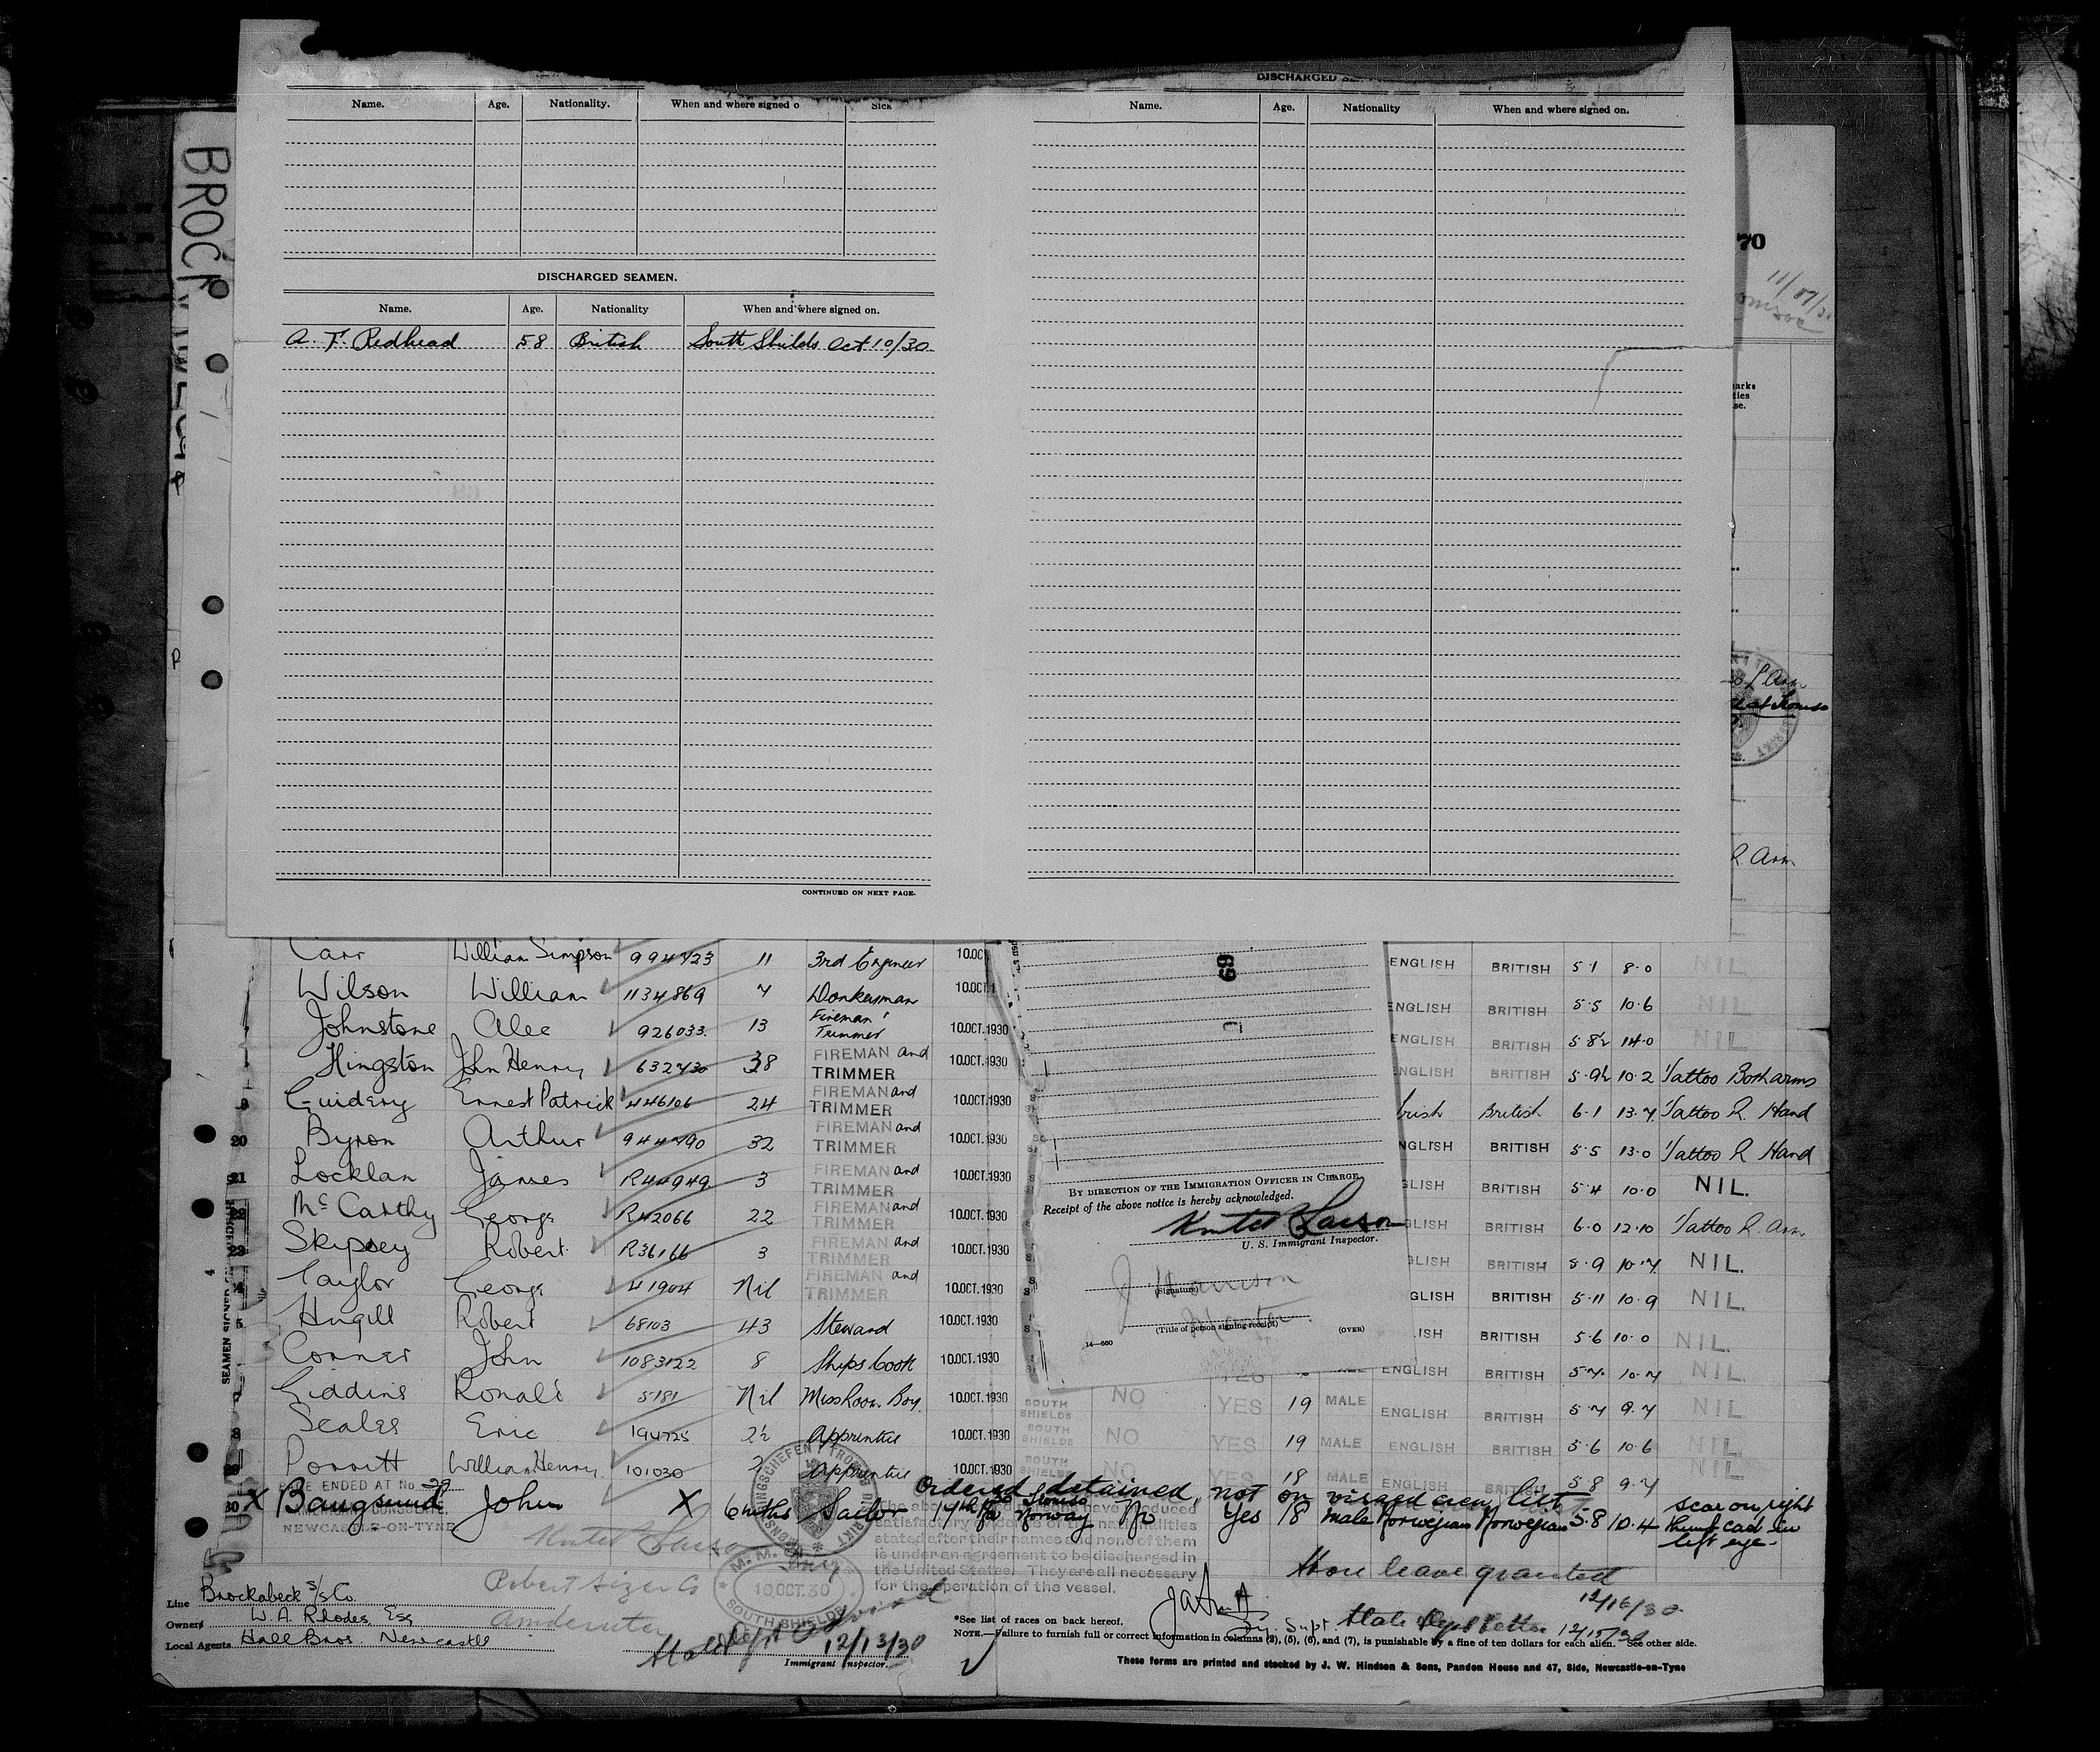 BROCK
DISCHARGED
Name. Age. Nationality. When and where signed o Sick
Name. Age. Nationality When and where signed on.
70
DISCHARGED SEAMEN.
Name. Age. Nationality When and where signed on.
A. F. Redhead 58 British South Shields Oct 10/30
CONTINUED ON NEXT PAGE.
R. Arm
Carr William Simpson 994723 11 3rd Engineer 10.OC ENGLISH BRITISH 5·1 8·0 NIL
Wilson William 1134869 7 Donkeyman 10.OCT.1 ENGLISH BRITISH 5·5 10·6 NIL
Johnstone Alec 926033 13 Fireman Trimmer 10.OCT.1930 ENGLISH BRITISH 5·8½ 14·0 NIL
Hingston John Henry 632730 38 FIREMAN and TRIMMER 10.OCT.1930 ENGLISH BRITISH 5·9½ 10·2 Tattoo Both arms
Guidery Ernest Patrick 446106 24 FIREMAN and TRIMMER 10.OCT.1930 Irish British 6·1 13·7 Tattoo R. Hand
20 Byron Arthur 944790 32 FIREMAN and TRIMMER 10.OCT.1930 NGLISH BRITISH 5·5 13·0 Tattoo R Hand
21 Locklan James R44949 3 FIREMAN and TRIMMER 10.OCT.1930 GLISH BRITISH 5·4 10·0 NIL.
22 McCarthy George R42066 22 FIREMAN and TRIMMER 10.OCT.1930 GLISH BRITISH 6·0 12·10 Tattoo R Arm
23 Skipsey Robert R36166 3 FIREMAN and TRIMMER 10.OCT.1930 GLISH BRITISH 5·9 10·7 NIL.
4 Taylor George 41904 Nil FIREMAN and TRIMMER 10.OCT.1930 GLISH BRITISH 5·11 10·9 NIL.
5 Hugill Robert 68103 43 Steward 10.OCT.1930 ISH BRITISH 5·6 10·0 NIL.
Corner John 1083122 8 Ships Cook 10.OCT.1930 ENGLISH BRITISH 5·7 10·7 NIL
Giddins Ronald 5181 Nil Messroom Boy 10.OCT.1930 SOUTH SHIELDS NO YES 19 MALE ENGLISH BRITISH 5·7 9·7 NIL
8 Scales Eric 194725 2½ Apprentice 10.OCT.1930 SOUTH SHIELDS NO YES 19 MALE ENGLISH BRITISH 5·6 10·6 NIL
29 Porritt William Henry 101030 2 Apprentice 10.OCT.1930 SOUTH SHIELDS NO YES 18 MALE ENGLISH BRITISH 5·8 9·7 NIL
ENDED AT No. 29
AMERICAN CONSULATE,
NEWCASTLE-ON-TYNE
Ordered detained, not on visaed crew list
30 X Baugsund John X 6 mths Sailor 17th Tromso Norway No Yes 18 Male Norwegian Norwegian 5·8 10·4 scar on right thumb cad in left eye.
69
BY DIRECTION OF THE IMMIGRATION OFFICER IN CHARGE
Receipt of the above notice is hereby acknowledged.
Knute Larson
U. S. Immigrant Inspector.
J Harrison
(Signature)
Master
(Title of person signing receipt)
14—660 (OVER)
SEAMEN SIGNED ON
satisfactory evidence of the nationalities
stated after their names and none of them
is under an agreement to be discharged in
the United States. They are all necessary
for the operation of the vessel.
Knute Larson
M. M. O.
10 OCT. 30
SOUTH SHIELDS
Shore leave granted
12/16/30
Line Brockabeck S/S Co.
Owners W. A. Rhodes, Esq
Local Agents Hall Bros Newcastle
12/13/30
Immigrant Inspector.
*See list of races on back hereof.
NOTE.—Failure to furnish full or correct information in columns (2), (5), (6), and (7), is punishable by a fine of ten dollars for each alien. See other side.
These forms are printed and stocked by J. W. Hindson & Sons, Pandon House and 47, Side, Newcastle-on-Tyne